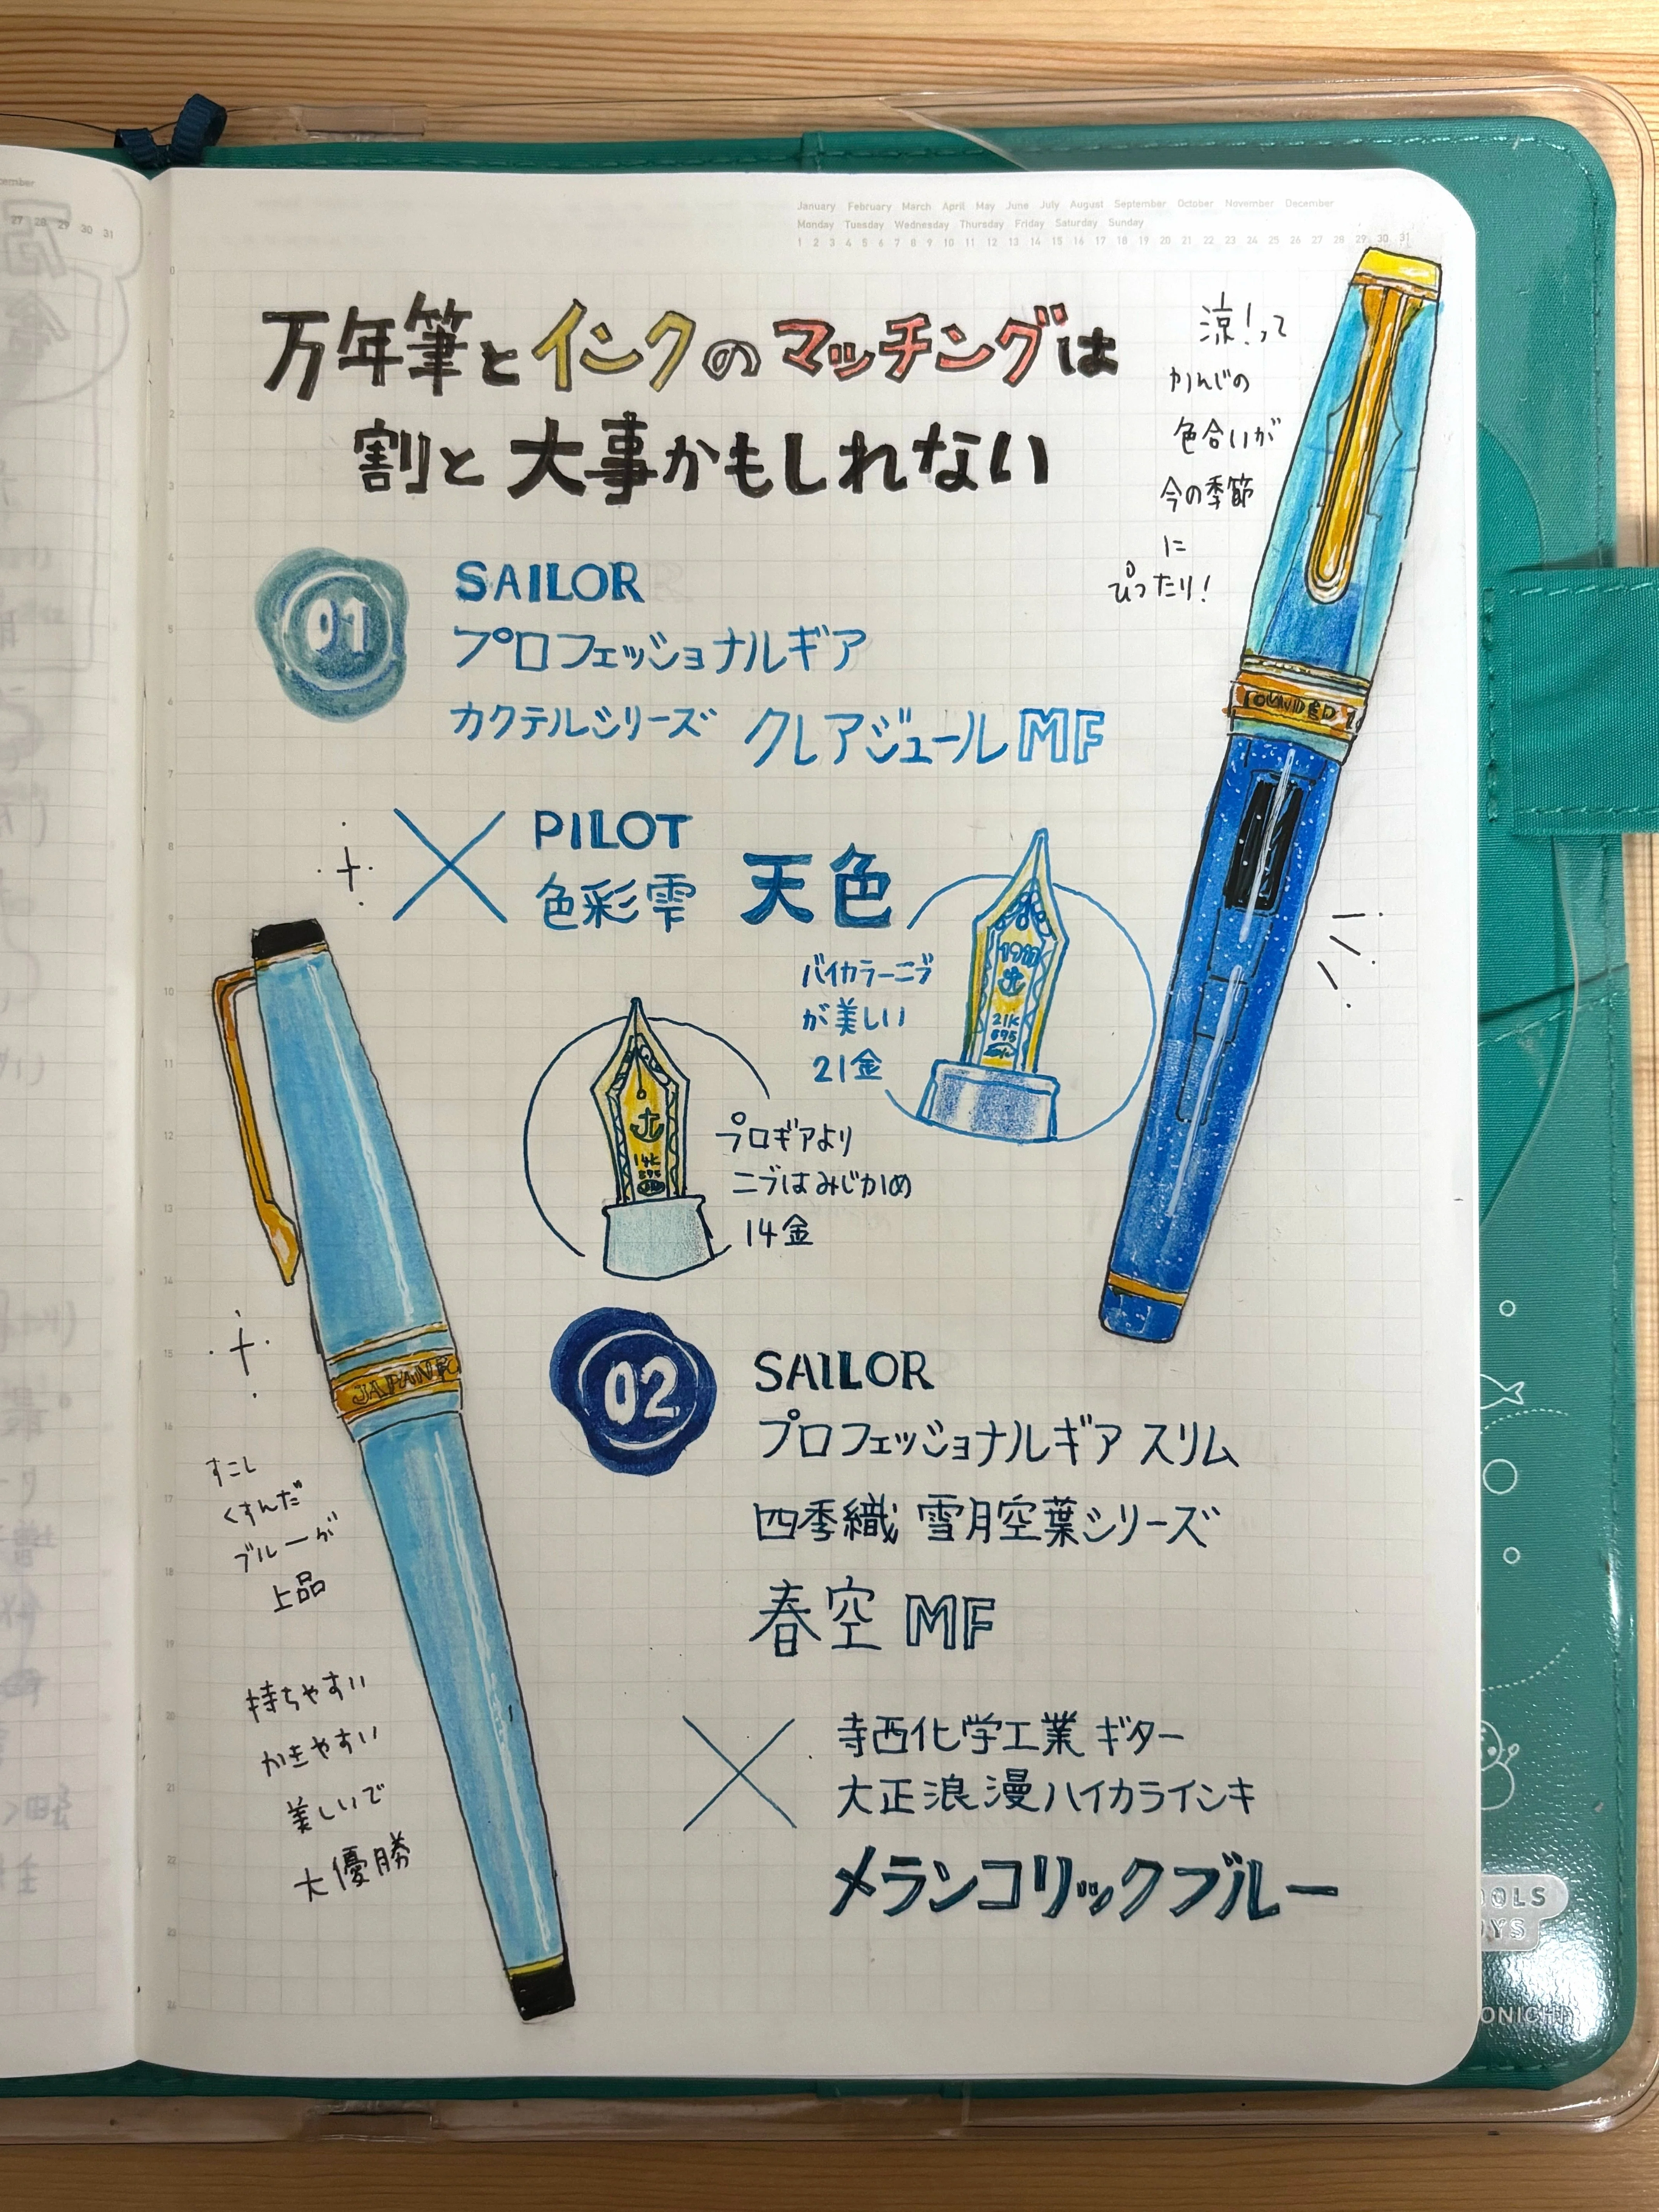 January February March April May June July August September October November December
Monday Tuesday Wednesday Thursday Friday Saturday Sunday
1 2 3 4 5 6 7 8 9 10 11 12 13 14 15 16 17 18 19 20 21 22 23 24 25 26 27 28 29 30 31
万年筆とインクのマッチングは
割と大事かもしれない
涼!って
かんじの
色合いが
今の季節
に
ぴったり!
01
SAILOR
プロフェッショナルギア
カクテルシリーズ クレアジュール MF
PILOT
色彩雫 天色
バイカラーニブ
が美しい
21金
21K
875
プロギアより
ニブはみじかめ
14金
14K
OUNDED
JAPAN
02
SAILOR
プロフェッショナルギア スリム
四季織 雪月空葉シリーズ
春空 MF
寺西化学工業 ギター
大正浪漫ハイカラインキ
メランコリックブルー
すこし
くすんだ
ブルーが
上品
持ちやすい
かきやすい
美しいで
大優勝
OOLS
OYS
27 28 29 30 31